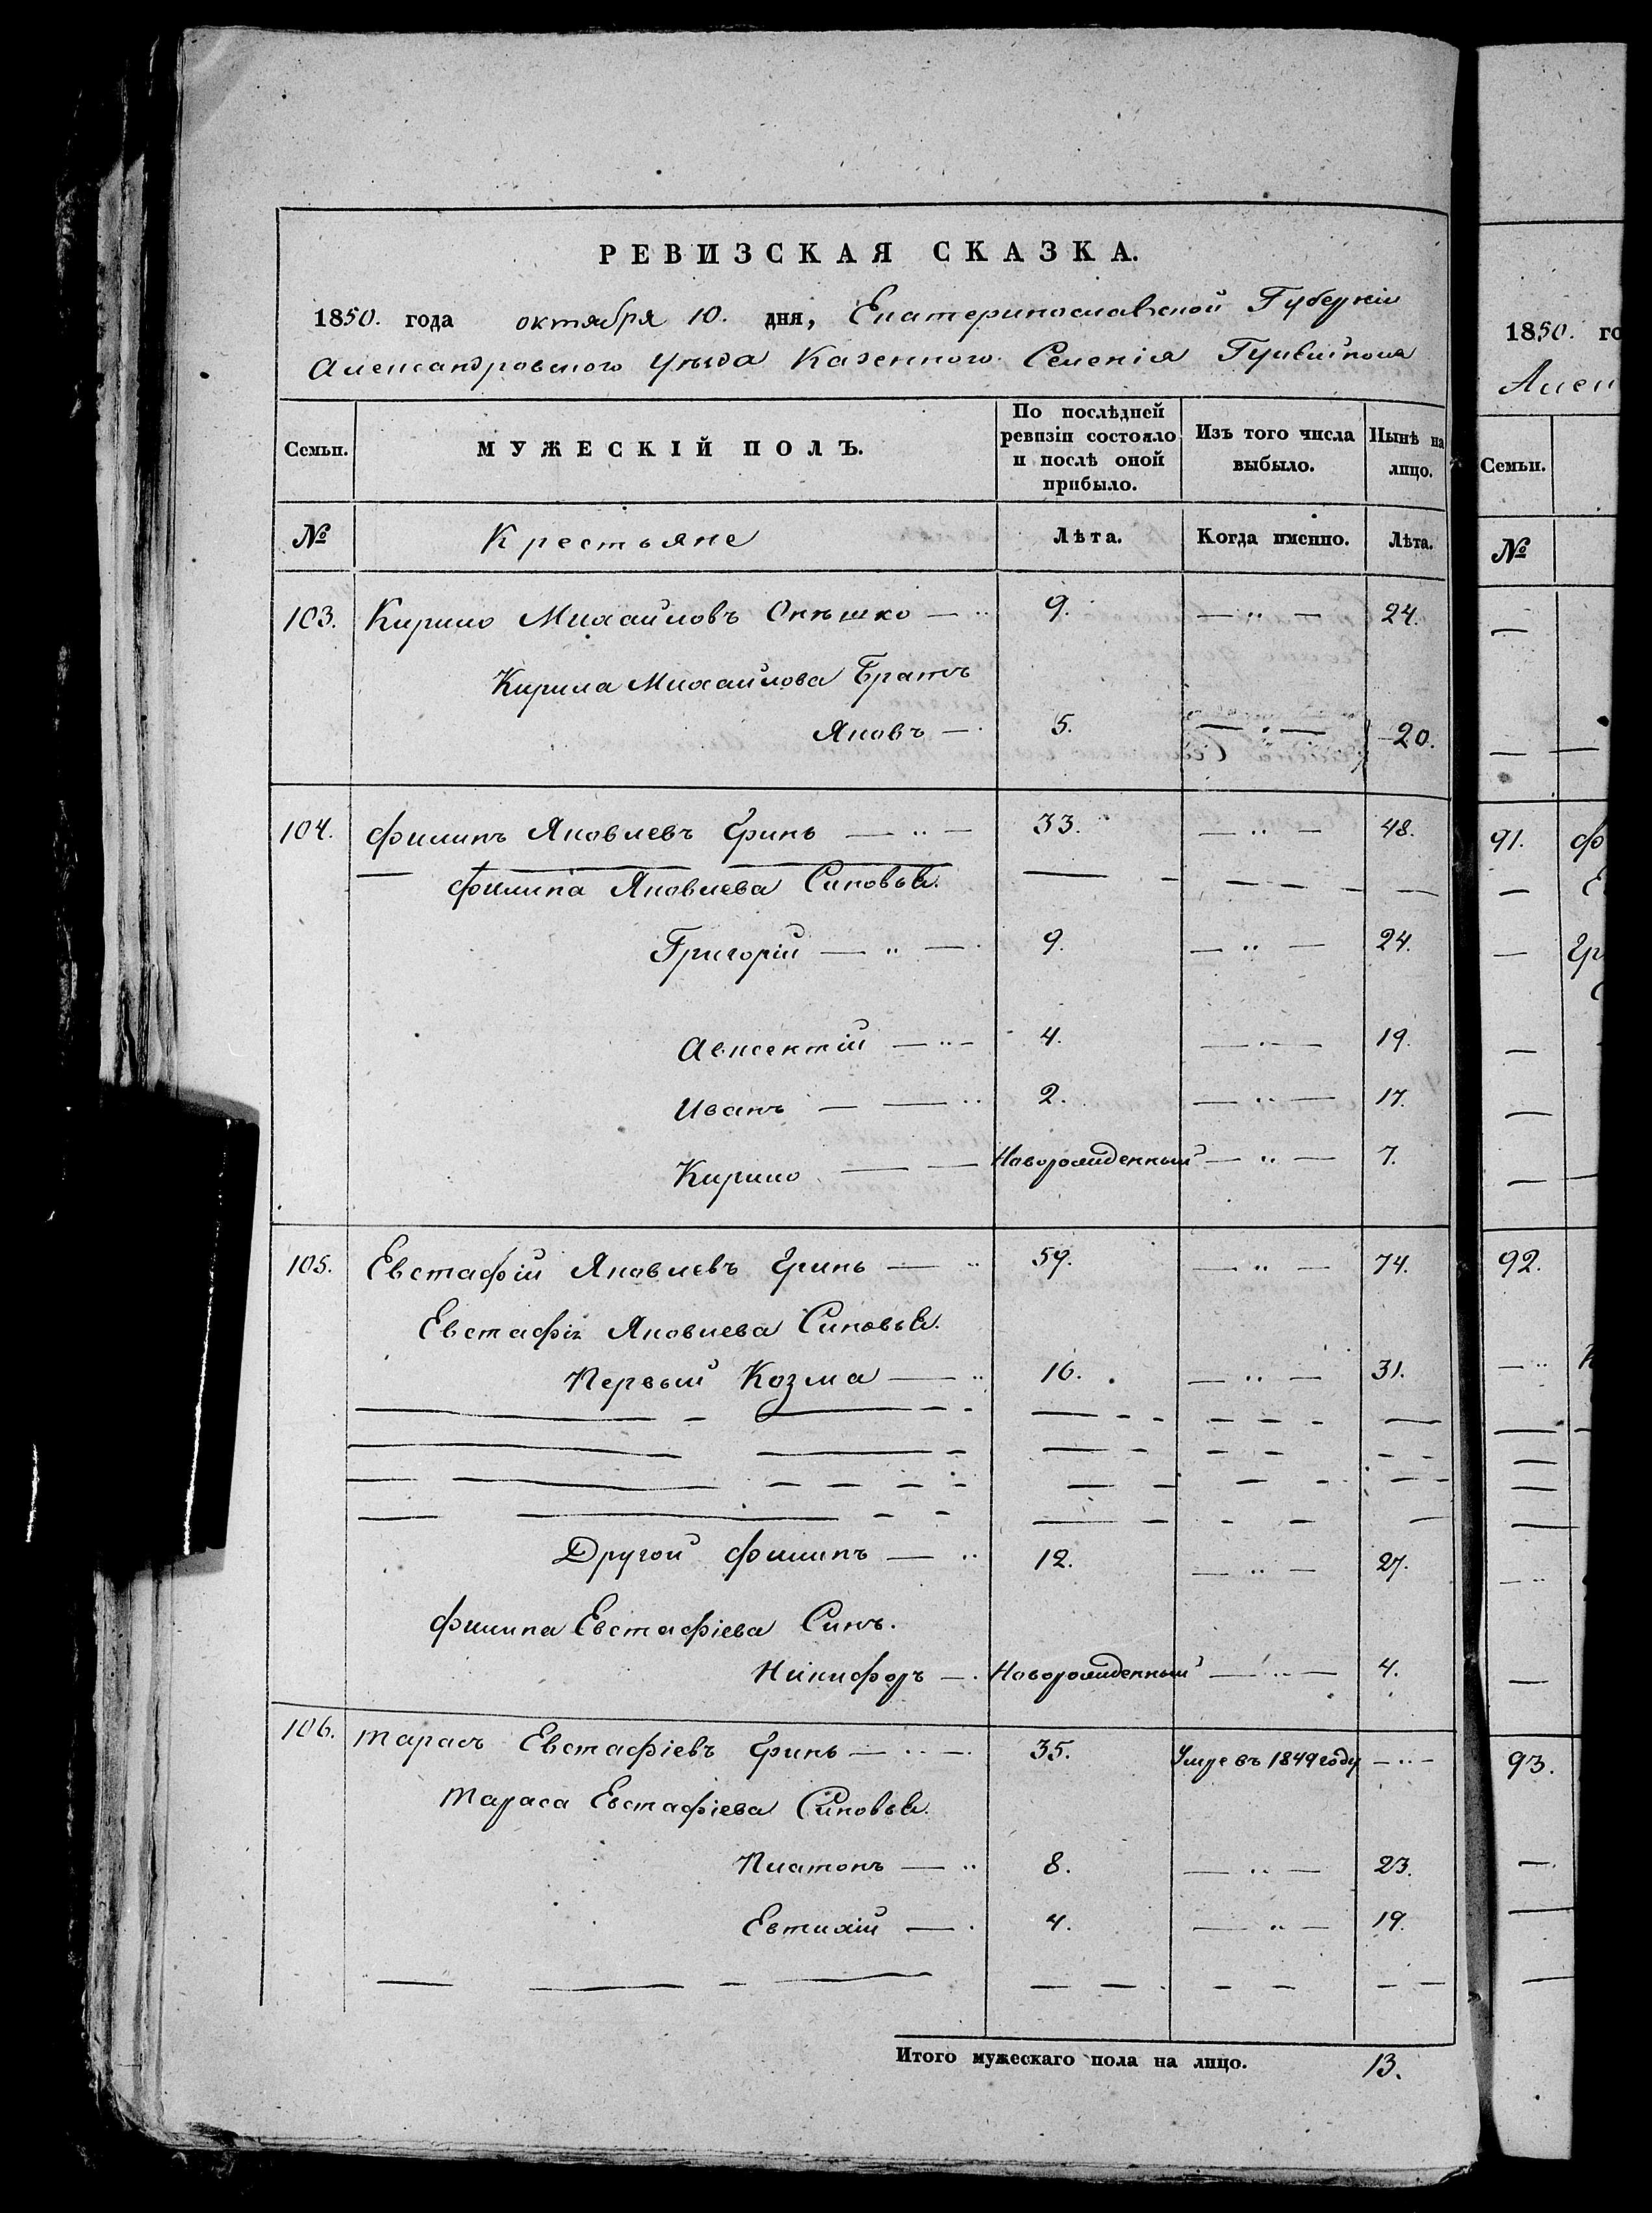 РЕВИЗСКАЯ СКАЗКА.
1850. года октября 10. дня, Екатеринославской Губерніи
Александровского Уѣзда Казенного Селенія Гуляйполя
Семьи. МУЖЕСКІЙ ПОЛЪ. По послѣдней ревизіи состояло и послѣ оной прибыло. Изъ того числа выбыло. Нынѣ на лицо.
№ Крестьяне Лѣта. Когда именно. Лѣта.
103. Кирило Михайловъ Онѣшко — ·· 9. — ·· — 24.
Кирила Михайлова Братъ
Яковъ — · 5. — · — 20.
104. Филипъ Яковлевъ Гринь — ·· — 33. — ·· — 48.
Филипа Яковлева Синовья.
Григорій — ·· — · 9. — ·· — 24.
Авксентій — ·· — 4. — ·· — 19.
Иванъ — — ·· 2. — ·· — 17.
Кирило — — Новорожденный — ·· — 7.
105. Евстафій Яковлевъ Гринь — ·· 59. — ·· — 74.
Евстафія Яковлева Синовья.
Первый Козма — ·· 16. — ·· — 31.
Другой Филипъ — ·· 12. — ·· — 27.
Филипа Евстафіева Синъ.
Никифоръ — · Новорожденный — ·· — 4.
106. Тарасъ Евстафіевъ Гринь — ·· — 35. Умре въ 1849 году — ·· —
Тараса Евстафіева Синовья.
Платонъ — ·· 8. — ·· — 23.
Евтихій — · 4. — ·· — 19.
Итого мужескаго пола на лицо. 13.
1850. го
Алек
Семьи.
№
91. Ф
Е
Гр
92.
93.